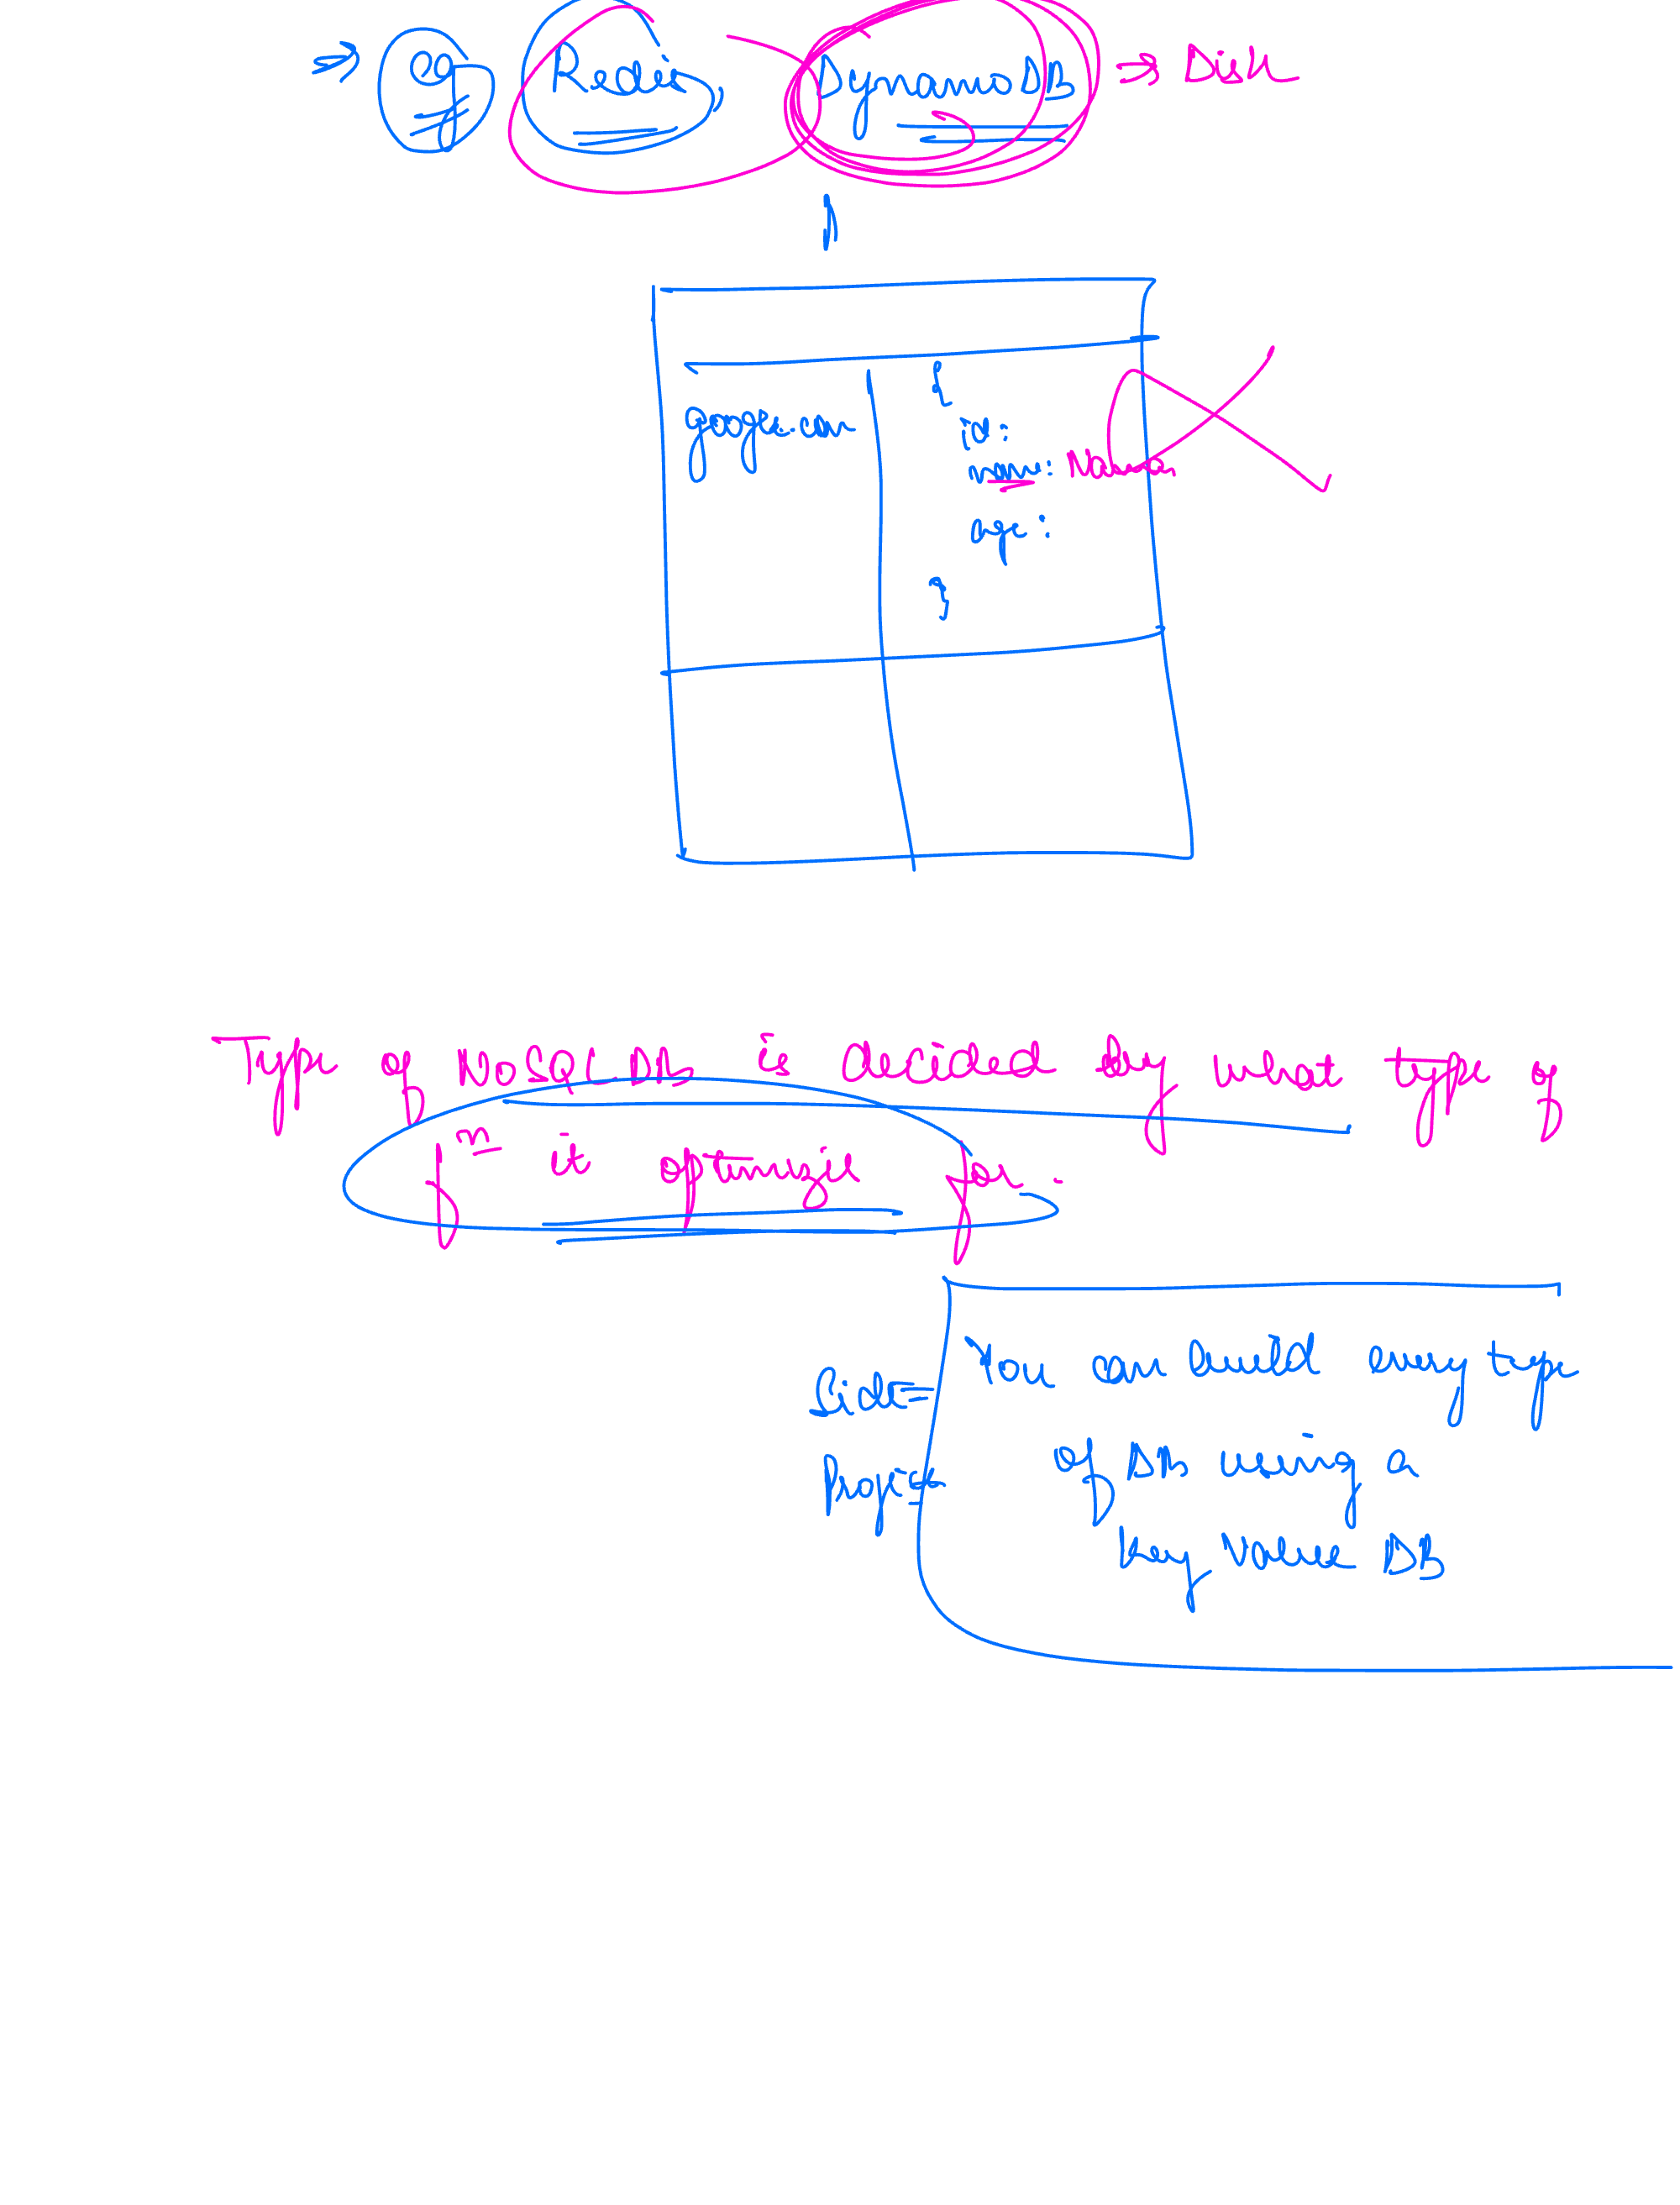 ⇒ eg Redis, DynamoDB ⇒ Disk
google.com
{
id:
name: Naman
age:
}
Type of NoSQL DB is decided by what type of
fn it optimizes for.
Side
Project
You can build every type
of DB using a
Key Value DB